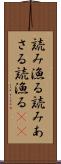 読み漁る読みあ
さる読漁る